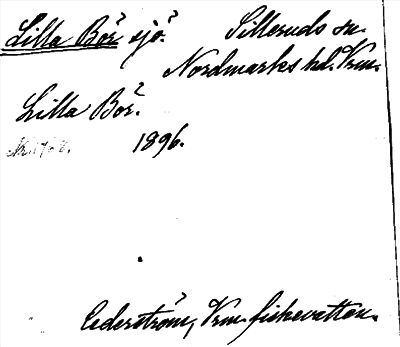 Lilla Bör sjö. Silleruds sn.
Nordmarks hd. Vrm.
Lilla Bör.
1896.
Cederström, Vrm. fiskevatten.